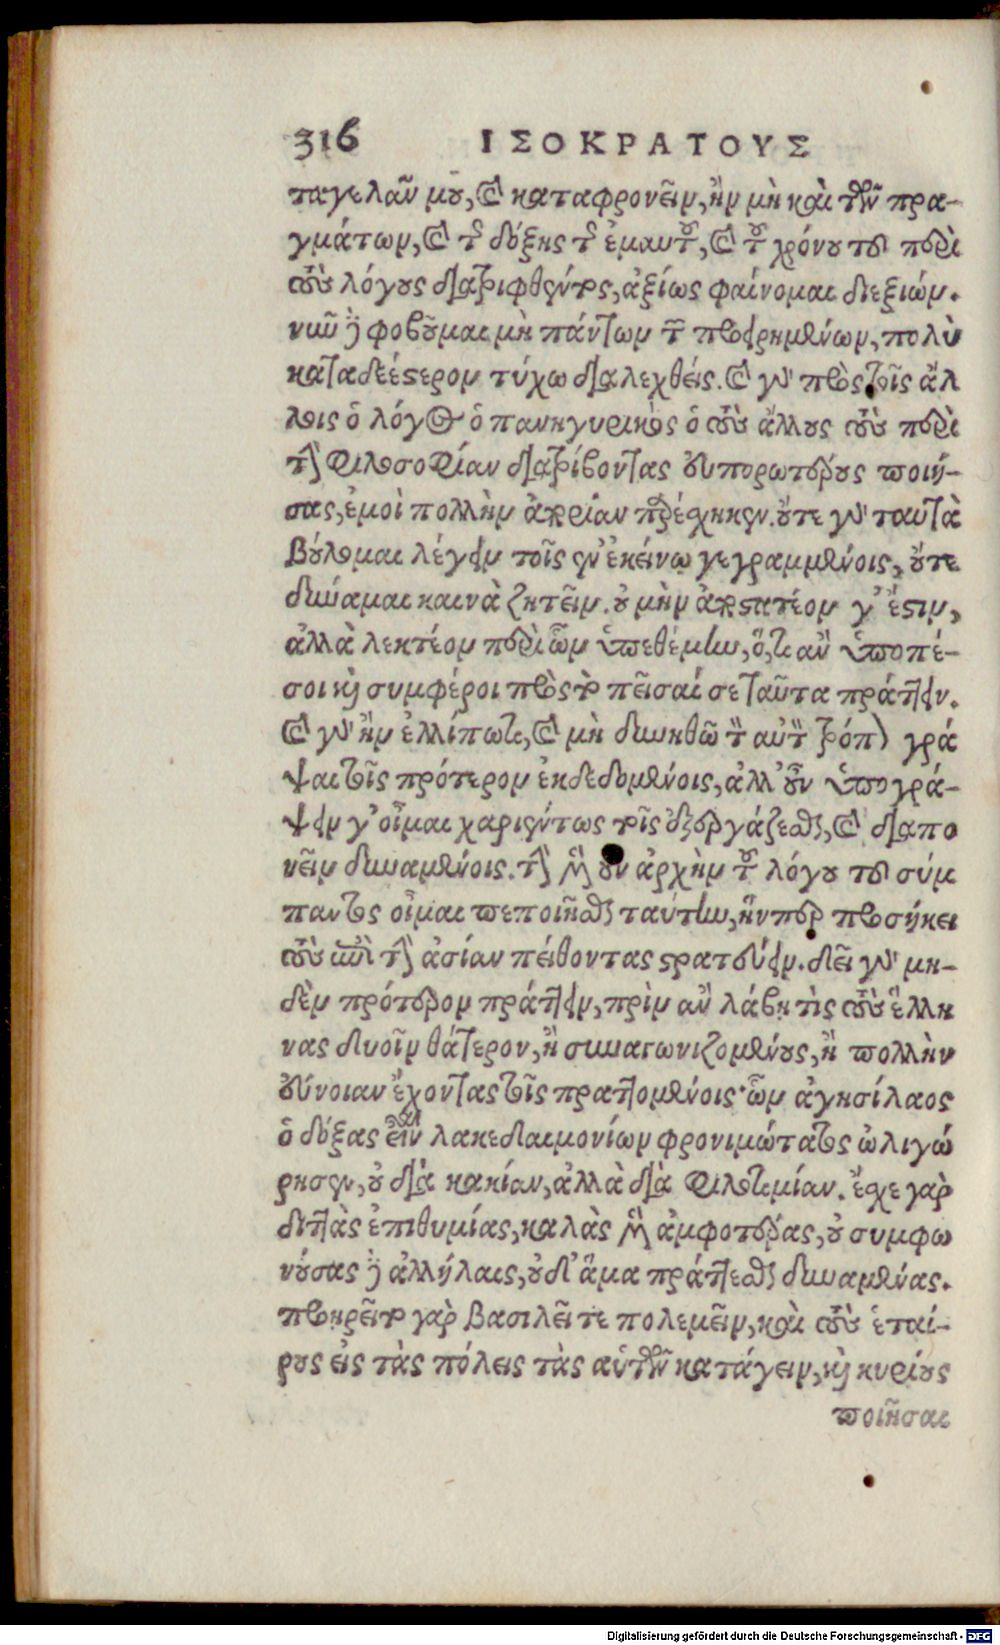 316 ΙΣΟΚΡΑΤΟΥΣ
ταγελᾶν μου, καὶ καταφρονεῖν, ἢν μὴ καὶ τῶν πρα-
γμάτων, καὶ τῆς δόξης τῆς ἐμαυτοῦ, καὶ τοῦ χρόνου τοῦ περὶ
τοὺς λόγους διατριφθέντος, ἀξίως φαίνομαι διεξιών.
νῦν δὲ φοβοῦμαι μὴ πάντων τῶν προειρημένων, πολὺ
καταδεέστερον τύχω διαλεχθείς. καὶ γὰρ πρὸς τοῖς ἄλ
λοις ὁ λόγος ὁ πανηγυρικὸς ὁ τοὺς ἄλλους τοὺς περὶ
τὴν φιλοσοφίαν διατρίβοντας εὐπορωτέρους ποιή-
σας, ἐμοὶ πολλὴν ἀπορίαν παρέσχηκεν. οὔτε γὰρ ταυτὰ
βούλομαι λέγειν τοῖς ἐν ἐκείνῳ γεγραμμένοις, οὔτε
δύναμαι καινὰ ζητεῖν. οὐ μὴν ἀποστατέον γ' ἐστιν,
ἀλλὰ λεκτέον περὶ ὧν ὑπεθέμην, ὅ,τι ἂν ὑποπέ-
σοι καὶ συμφέροι πρὸς τὸ πεῖσαί σε ταῦτα πράττειν.
καὶ γὰρ ἢν ἐλλίπω τι, καὶ μὴ δυνηθῶ τὸν αὐτὸν τρόπον γρά
ψαι τοῖς πρότερον ἐκδεδομένοις, ἀλλ' οὖν ὑπογρά-
ψειν γ' οἶμαι χαριέντως τοῖς ἐξεργάζεσθαι, καὶ διαπο
νεῖν δυναμένοις. τὴν μὲν οὖν ἀρχὴν τοῦ λόγου τοῦ σύμ
παντος οἶμαι πεποιῆσθαι ταύτην, ἥνπερ προσήκει
τοὺς ἐπὶ τὴν ἀσίαν πείθοντας στρατεύειν. δεῖ γὰρ μη-
δὲν πρότερον πράττειν, πρὶν ἂν λάβῃ τὶς τοὺς ἕλλη
νας δυοῖν θάτερον, ἢ συναγωνιζομένους, ἢ πολλὴν
εὔνοιαν ἔχοντας τοῖς πραττομένοις· ὧν ἀγησίλαος
ὁ δόξας εἶναι λακεδαιμονίων φρονιμώτατος ὠλιγώ
ρησεν, οὐ διὰ κακίαν, ἀλλὰ διὰ φιλοτιμίαν. ἔσχε γὰρ
διττὰς ἐπιθυμίας, καλὰς μὲν ἀμφοτέρας, οὐ συμφω
νούσας δὲ ἀλλήλαις, οὐδ' ἅμα πράττεσθαι δυναμένας.
προῃρεῖτο γὰρ βασιλεῖ τε πολεμεῖν, καὶ τοὺς ἑταί-
ρους εἰς τὰς πόλεις τὰς αὑτῶν κατάγειν, καὶ κυρίους
ποιῆσαι
Digitalisierung gefördert durch die Deutsche Forschungsgemeinschaft - DFG